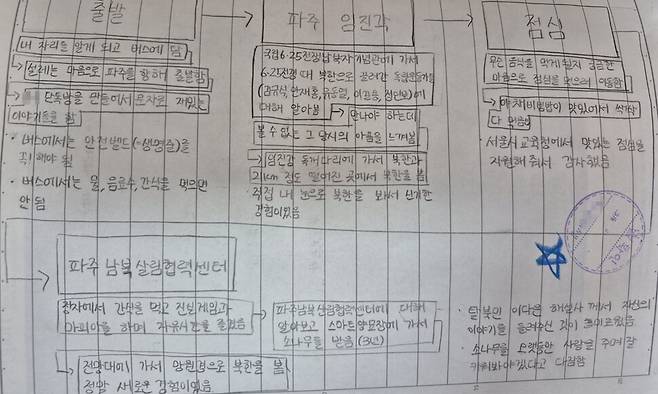 출발
내 자리를 알게 되고 버스에 탐
설레는 마음으로 파주를 향해 출발함
단톡방을 만들어서 문자로 재밌는
이야기를 함
• 버스에서는 안전벨트(=생명줄)를
꼭! 해야 됨
• 버스에서는 물, 음료수, 간식을 먹으면
안 됨
파주 임진각
국립6·25전쟁납북자기념관에 가서
6·25전쟁 때 북한으로 끌려간 독립운동가들
(김규식, 안재홍,
에
대해 알아봄
만나야 하는데
볼 수 없는 그 당시의 아픔을 느껴봄
임진강 독개다리에 가서 북한과
21km 정도 떨어진 곳에서 북한을 봄
· 직접 내 눈으로 북한을 봐서 신기한
경험이었음
점심
무슨 음식을 먹게 될지 궁금한
마음으로 점심을 먹으러 이동함
야채비빔밥이 맛있어서 싹싹
다 먹음
• 서울시 교육청에서 맛있는 점심을
지원해 줘서 감사했음
파주 남북산림협력센터
정자에서 간식을 먹고 진실게임과
마피아를 하며 자유시간을 즐겼음
파주남북산림협력센터에 대해
알아보고 스마트양묘장에 가서
소나무를 받음 (3년)
전망대에 가서 망원경으로 북한을 봄
정말 새로운 경험이었음
• 탈북민 이다은 해설사께서 자신의
이야기를 들려주신 것이 흥미로웠음
• 소나무를 오랫동안 사랑을 주며 잘
키워봐야겠다고 다짐함